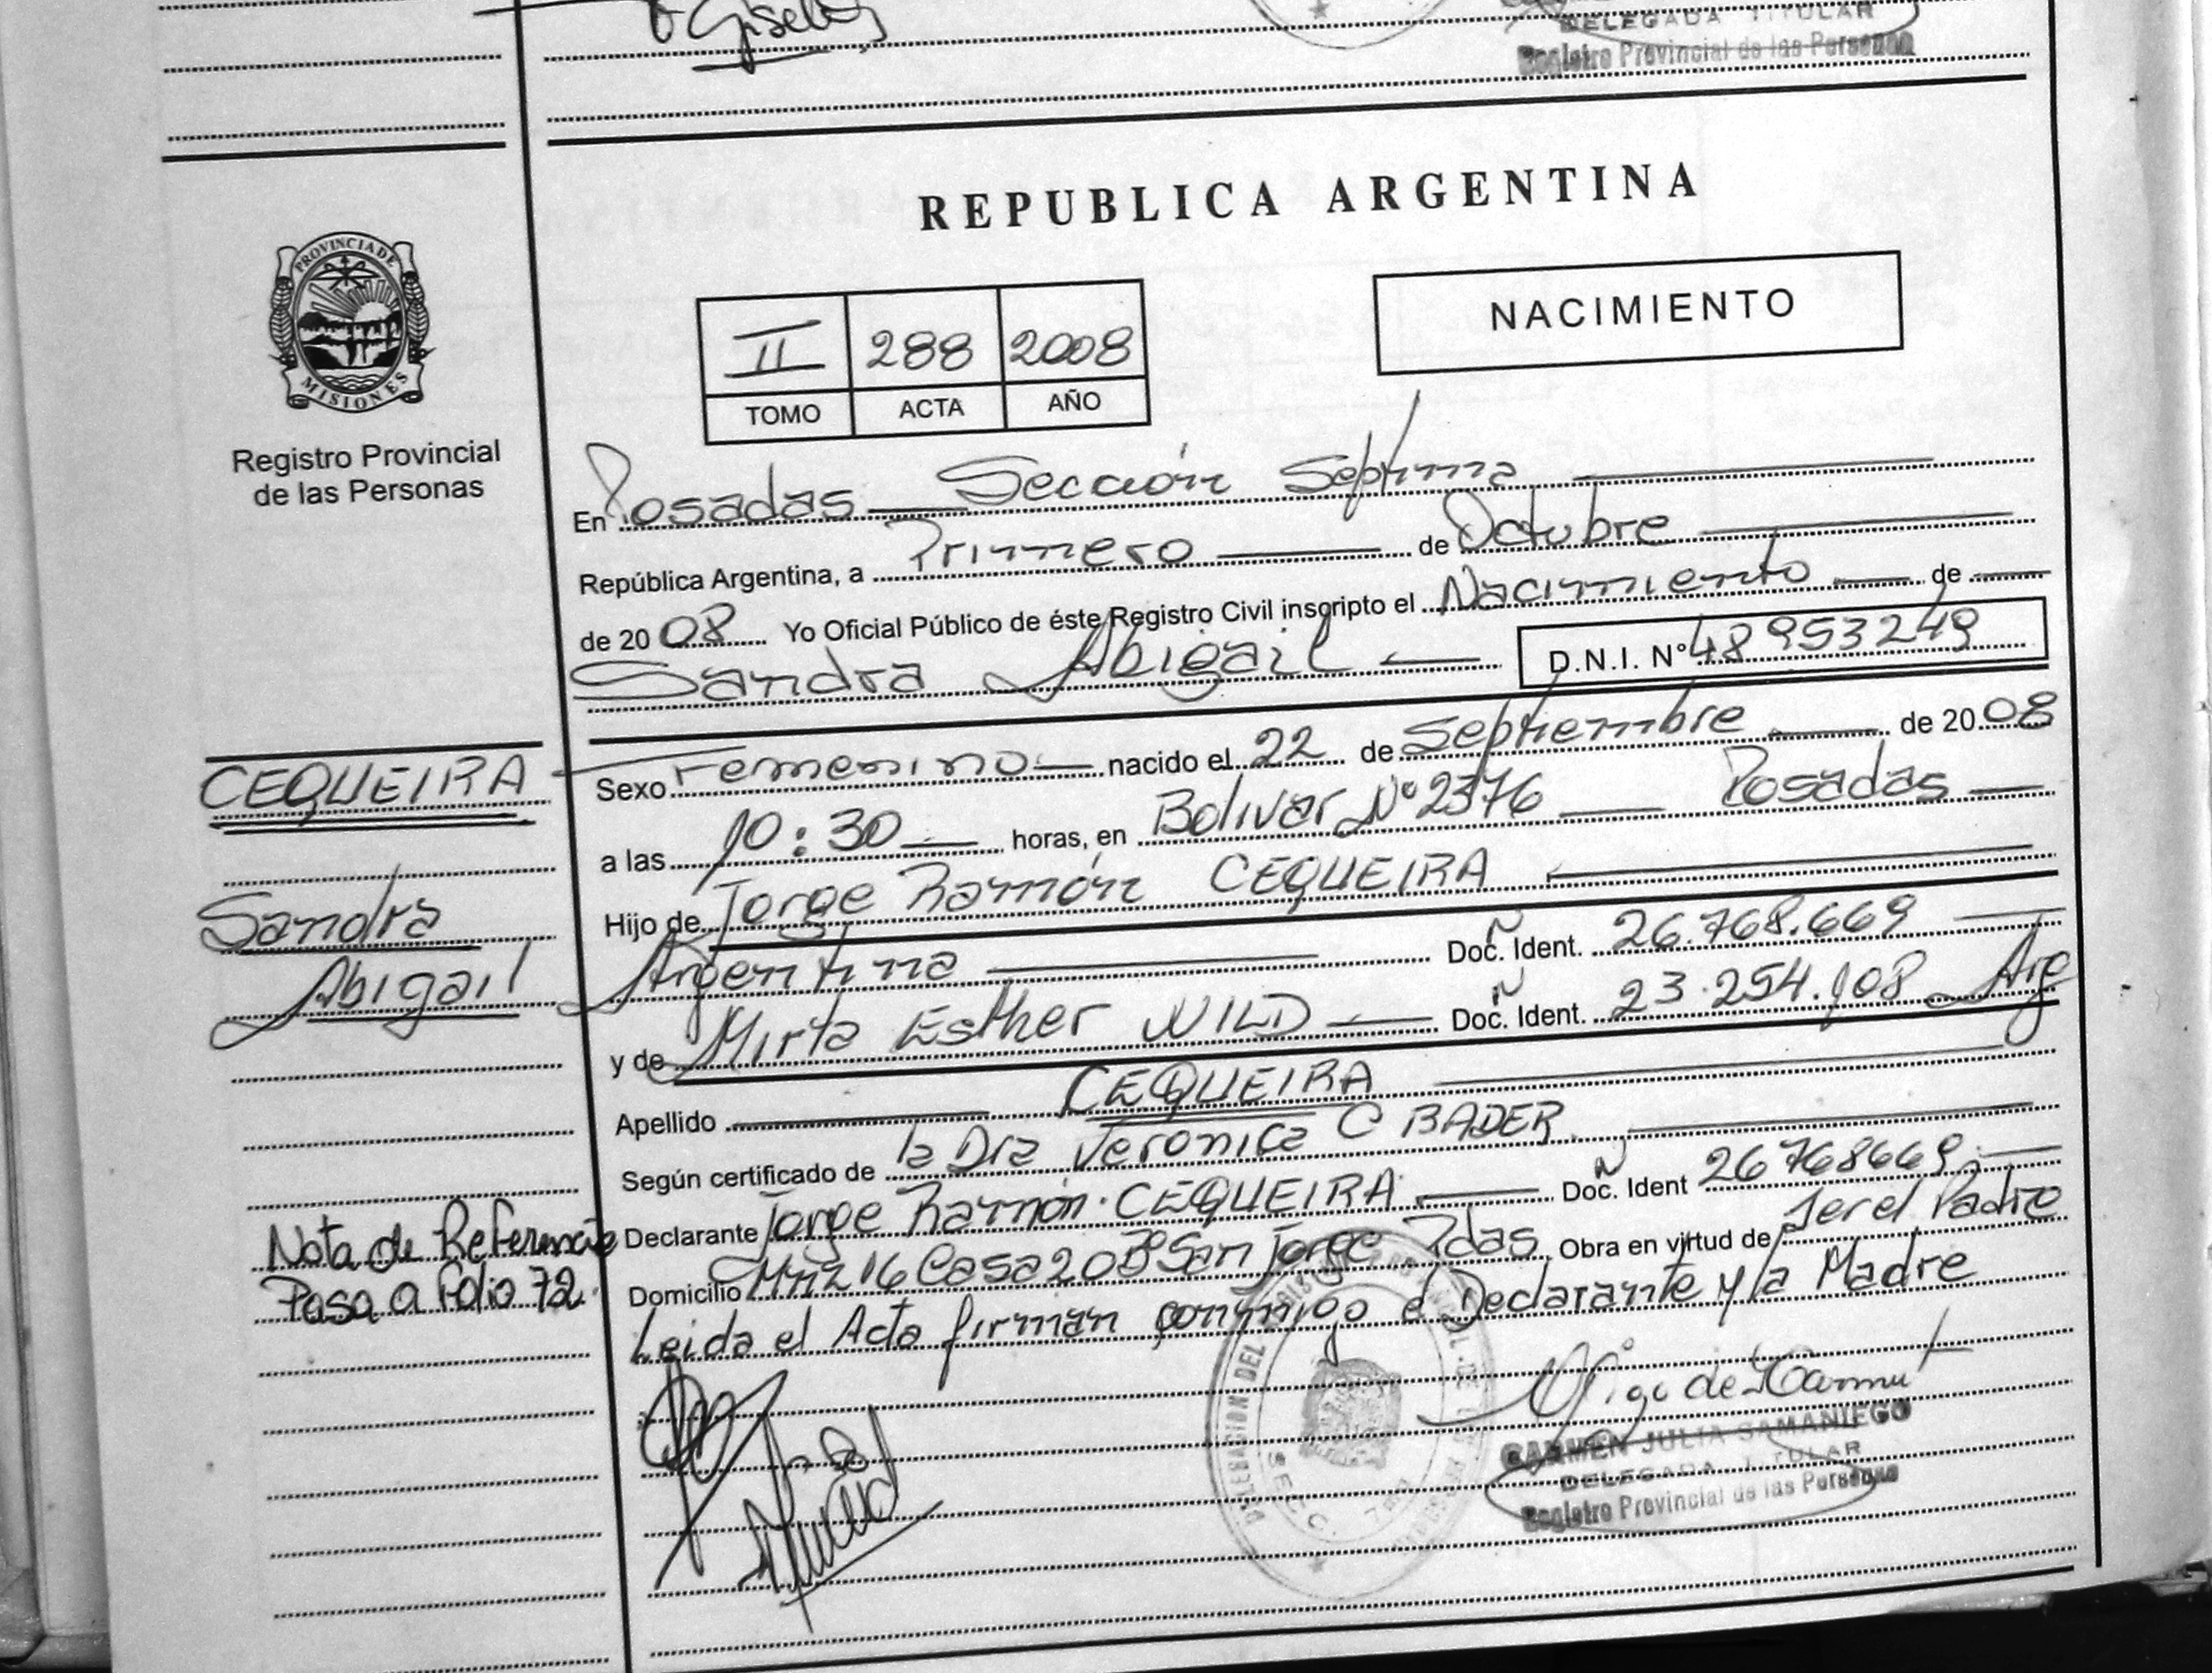 Giselly
DELEGADA TITULAR
Registro Provincial de las Personas
PROVINCIA DE
MISIONES
Registro Provincial
de las Personas
REPUBLICA ARGENTINA
II 288 2008
TOMO ACTA AÑO
NACIMIENTO
En Posadas Sección Septima
República Argentina, a Primero de Octubre
de 2008 Yo Oficial Público de éste Registro Civil inscripto el Nacimiento de
Sandra Abigail D.N.I. N° 48953249
CEQUEIRA
Sandra
Abigail
Sexo Femenino nacido el 22 de Septiembre de 2008
a las 10:30 horas, en Bolivar Nº 2376 Posadas
Hijo de Jorge Ramón CEQUEIRA
Argentina Doc. Ident. 26.768.669
y de Mirta Esther WILD Doc. Ident. 23.254.108 Arg
Apellido CEQUEIRA
Según certificado de la Dra Veronica C BADER
Declarante Jorge Ramón CEQUEIRA Doc. Ident 26768669
Domicilio Mnz 16 Casa 20 Bº San Jorge Pdas Obra en virtud de Ser el Padre
Leida el Acta firman conmigo el Declarante y la Madre
Nota de Referencia
Pasa a Folio 72
CARMEN JULIA SAMANIEGO
DELEGADA TITULAR
Registro Provincial de las Personas